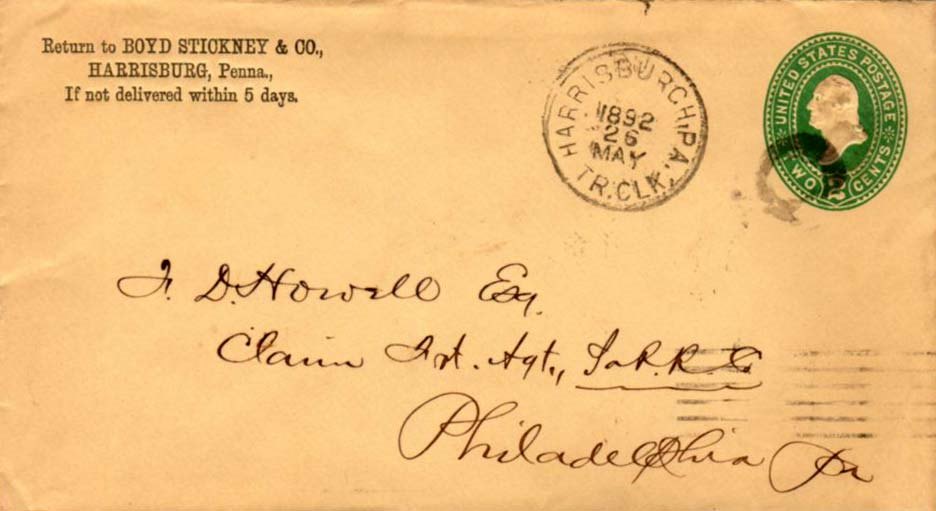 Return to BOYD STICKNEY & CO.,
HARRISBURG, Penna.,
If not delivered within 5 days.
HARRISBURGH, PA.
1892
26
MAY
TR. CLK.
UNITED STATES POSTAGE
TWO 2 CENTS
D. Howell Esq.
Claim Frt. Agt., R. R. Co
Philadelphia Pa